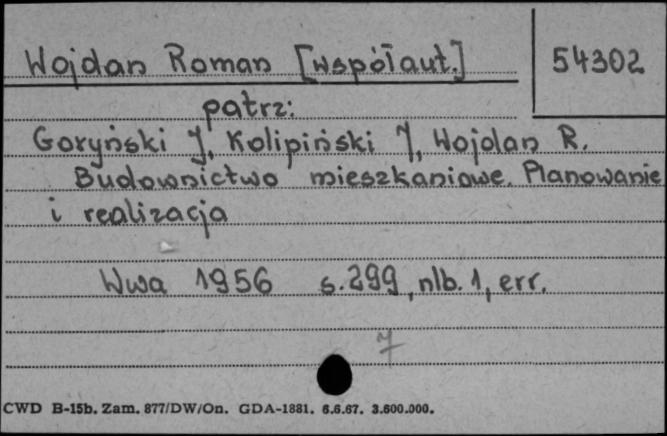 Wojdan Roman [współaut.] 54302
patrz:
Goryński J, Kolipiński J, Wojdan R.
Budownictwo mieszkaniowe. Planowanie
i realizacja
Wwa 1956 s.299, nlb. 1, err.
7
CWD B-15b. Zam. 877/DW/On. GDA-1881. 6.6.67. 3.600.000.